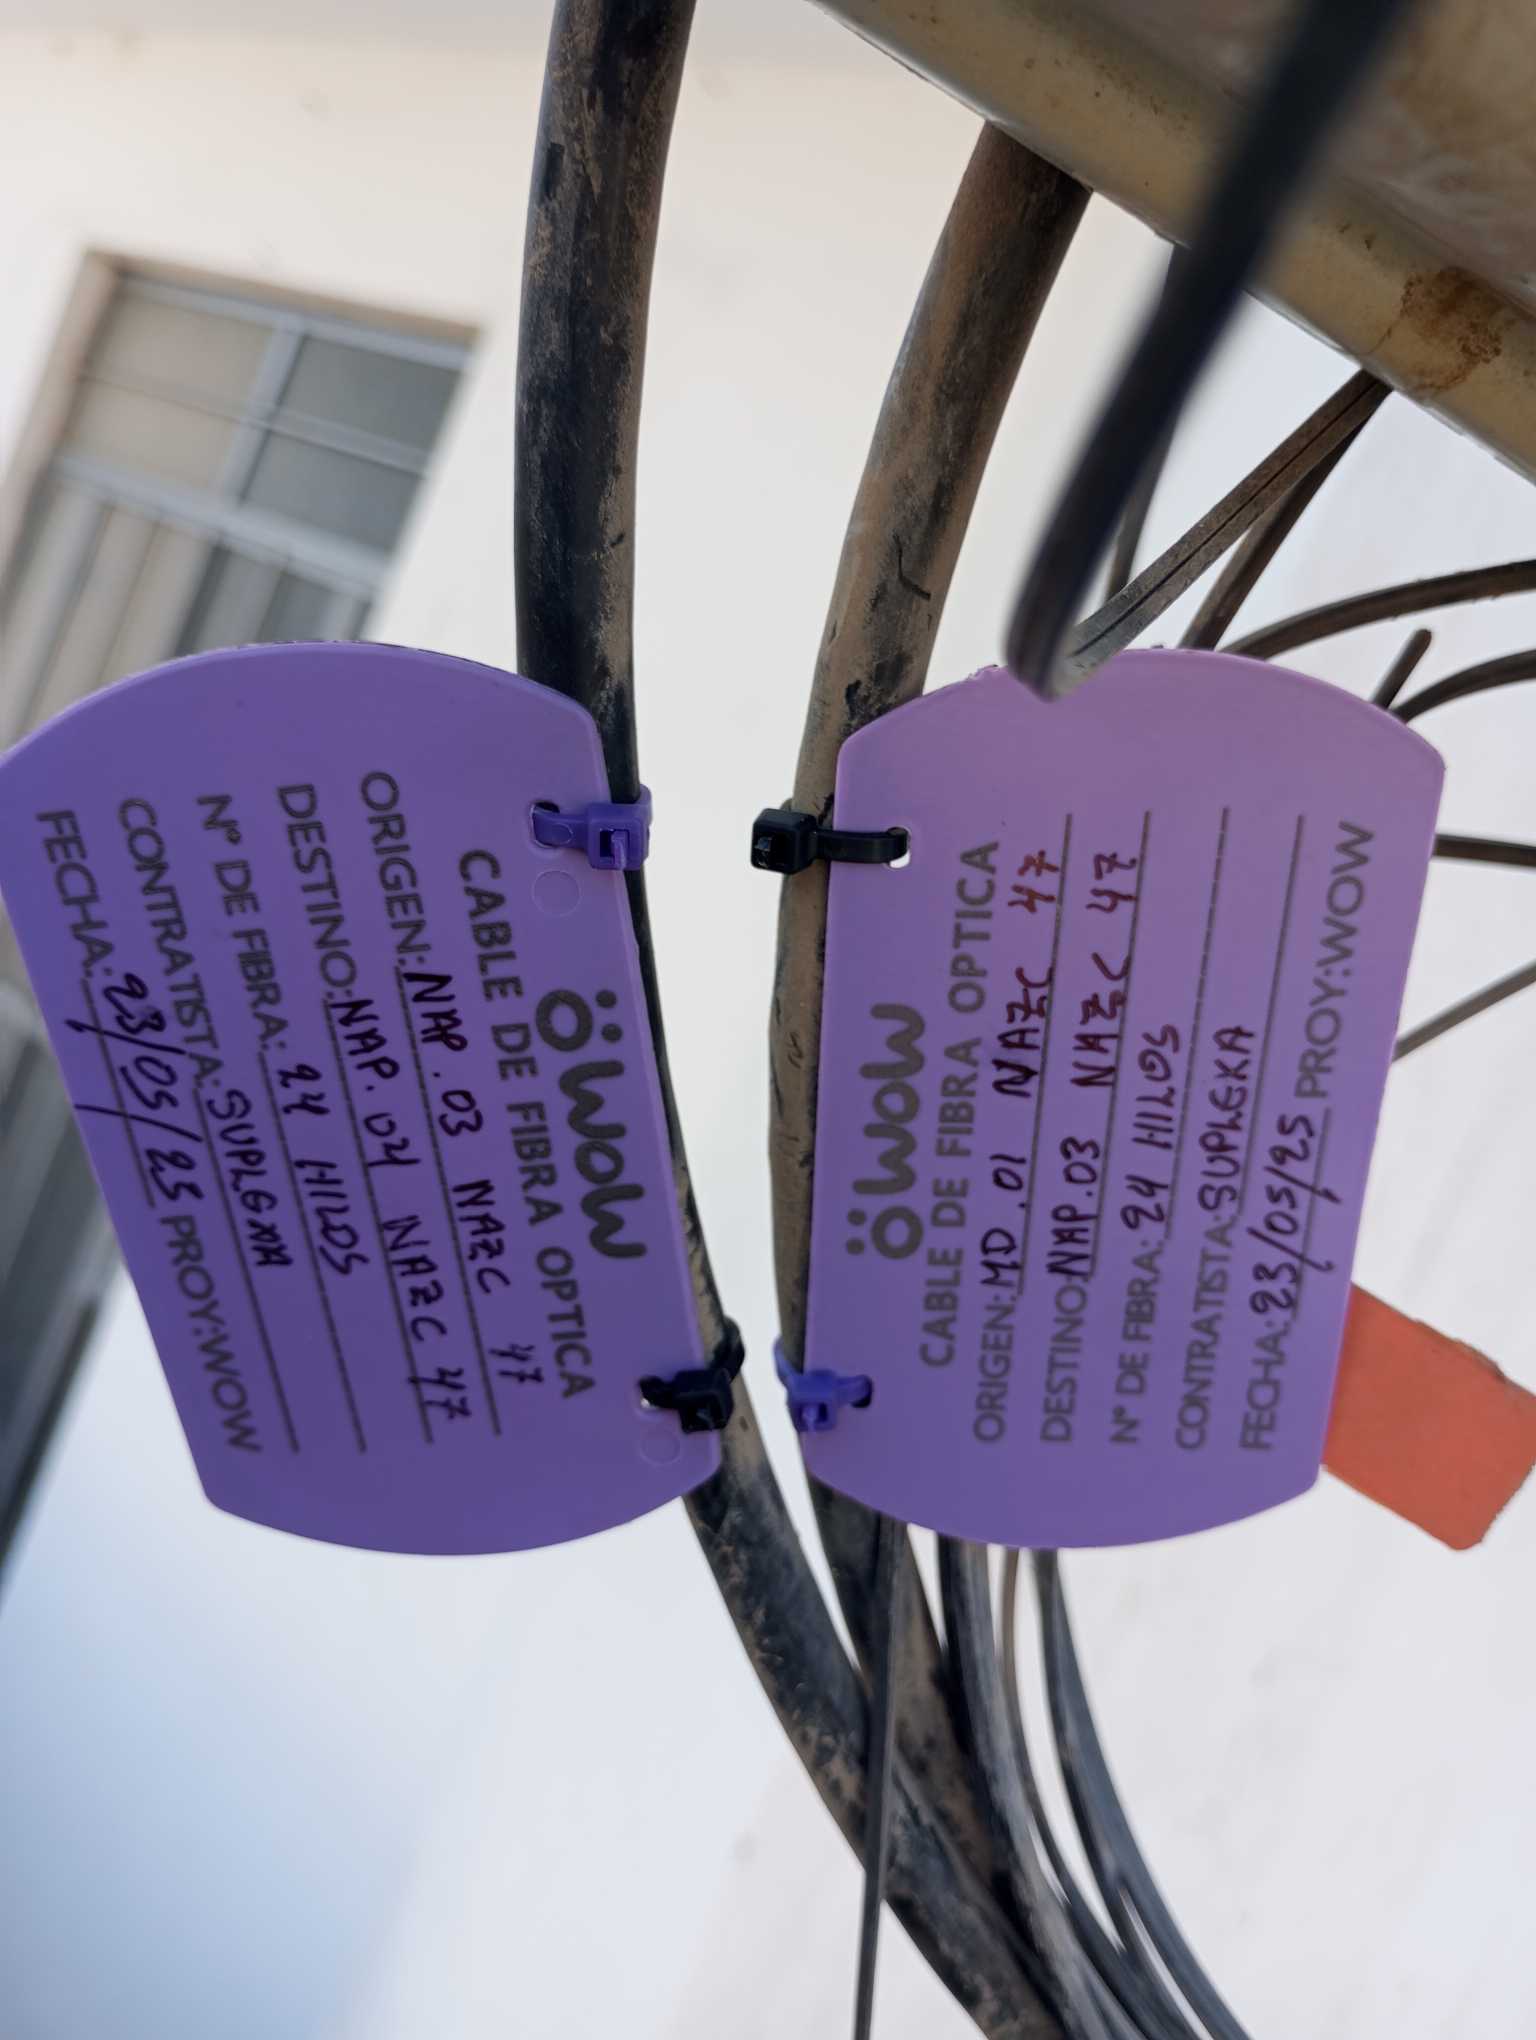 wow
CABLE DE FIBRA OPTICA
ORIGEN: NAP.03 NAZC 47
DESTINO: NAP.04 NAZC 47
N° DE FIBRA: 24 HILOS
CONTRATISTA: SUPLEXA
FECHA: 23/05/25 PROY:WOW
wow
CABLE DE FIBRA OPTICA
ORIGEN: MD.01 NAZC 47
DESTINO: NAP.03 NAZC 47
N° DE FIBRA: 24 HILOS
CONTRATISTA: SUPLEXA
FECHA: 23/05/25 PROY:WOW